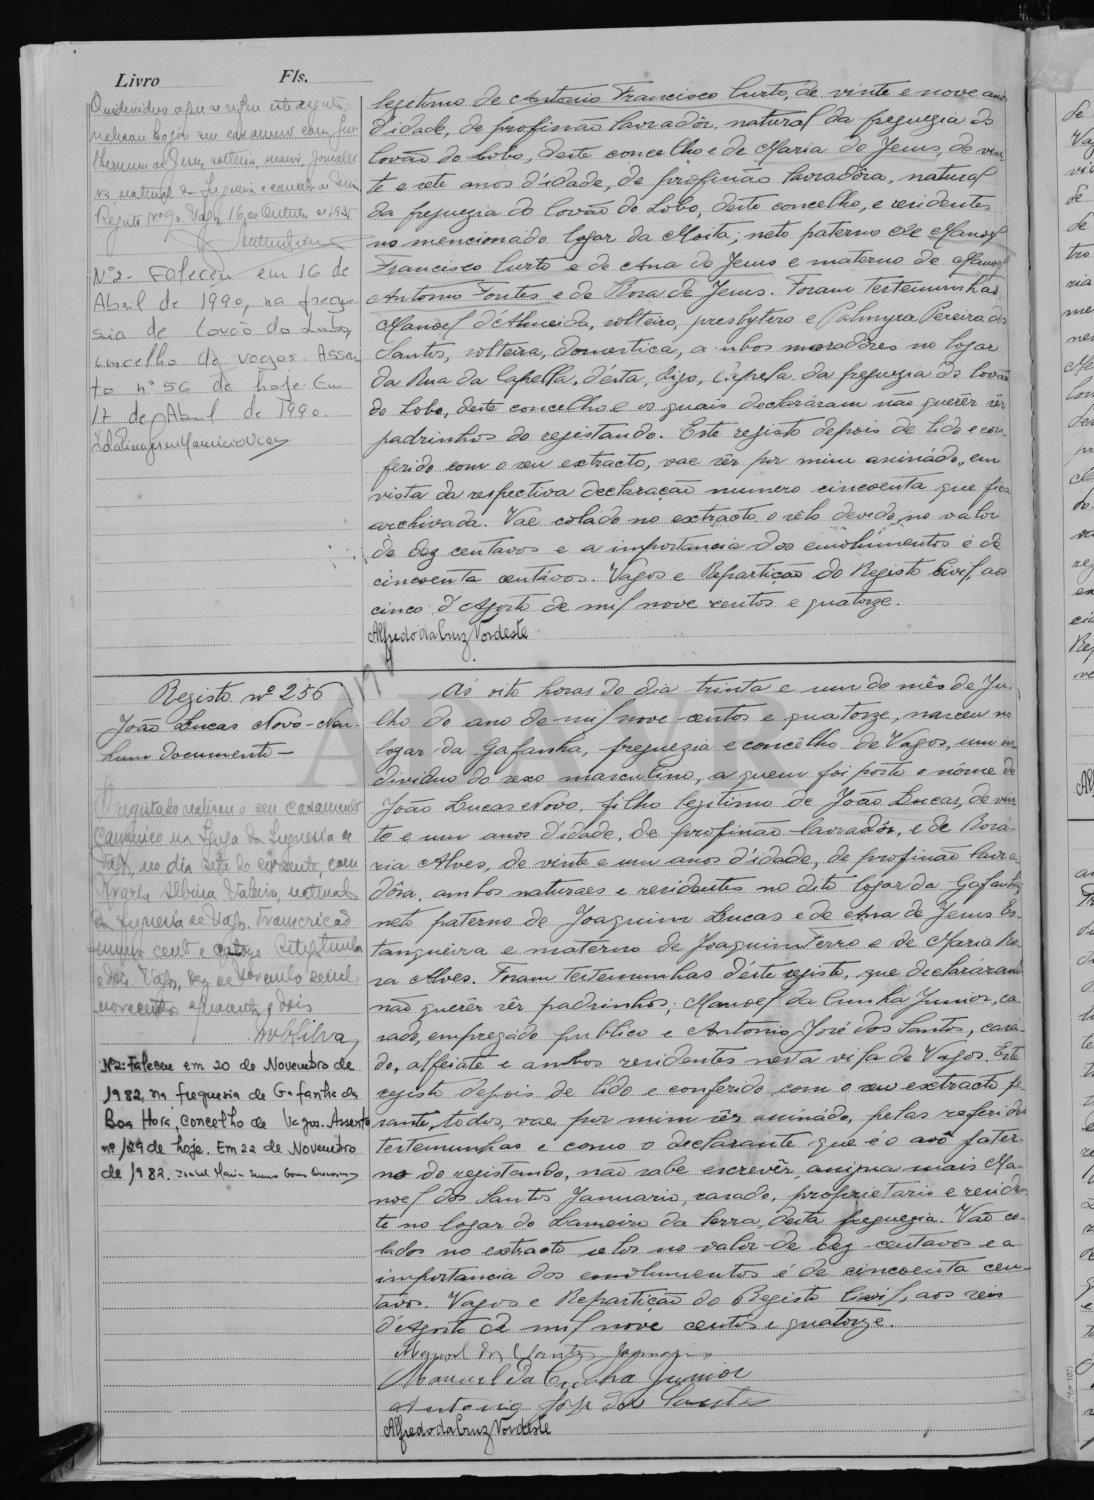 Livro Fls.
legitimo de Antonio Francisco Curto, de vinte e nove anos
d'idade, de profissão lavradôr, natural da freguezia do
Covão do Lobo, deste concelho e de Maria de Jesus, de vin
te e sete anos d'idade, de profissão lavradôra, natural
da freguezia do Covão do Lobo, deste concelho, e residentes
no mencionado logar da Moita; neto paterno de Manoel
Francisco Curto e de Ana de Jesus e materno de Manoel
Antonio Fontes e de Rosa de Jesus. Foram testemunhas
Manoel d'Almeida, solteiro, presbytero e Palmyra Pereira dos
Santos, solteira, domestica, ambos moradôres no logar
da Rua da Capella, désta, digo, Capela da freguezia do Covão
do Lobo, deste concelho e os quais declaráram não querêr sêr
padrinhos do registando. Este registo depois de lido e con-
ferido com o seu extracto, vae sêr por mim assinádo, em
vista da respectiva declaração numero cincoenta que fica
archivada. Vae colado no extracto o sêlo devido, no valor
de dez centavos e a importancia dos emolumentos é de
cincoenta centávos. Vagos e Repartição do Registo Civil, aos
cinco d'Agosto de mil nove centos e quatorze.
Alfredo da Cruz Nordeste
natural da freguesia e concelho de
Registo nº 90. Vagos, 16 de Outubro de 193
Nº2- Faleceu em 16 de
Abril de 1990, na fregue
sia de Covão do Lobo,
concelho de Vagos. Assen
to nº 56 de hoje. Em
17 de Abril de 1990.
Registo nº 256
João Lucas Novo - Ne-
nhum documento -
O registado realisou o seu casamento
canonico na Igreja da freguesia de
Vagos, no dia sete do corrente, com
Maria Albina, natural
da freguesia de Vagos. Transcrição
numero cento e
Vagos, dez de
novecentos e quarenta e dois
Nº2: Faleceu em 20 de Novembro de
1982, na freguesia de Gafanha da
Boa Hora, Concelho de Vagos. Assento
nº 129 de hoje. Em 22 de Novembro
de 1982.
Ás oito horas do dia trinta e um do mês de Ju-
lho do ano de mil nove centos e quatorze, nasceu no
logar da Gafanha, freguezia e concêlho de Vagos, um in
dividuo do sexo masculino, a quem foi posto o nóme de
João Lucas Novo, filho legitimo de João Lucas, de vin
te e um anos d'idade, de profissão lavradôr, e de Rosá-
ria Alves, de vinte e um anos d'idade, de profissão lavra-
dôra, ambos naturaes e residentes no dito logar da Gafanha,
neto paterno de Joaquim Lucas e de Ana de Jesus Es-
tangueira e materno de Joaquim Ferro e de Maria Ro-
sa Alves. Foram testemunhas déste registo, que declaráram
não querêr sêr padrinhos; Manoel da Cunha Junior, ca-
sado, empregado publico e Antonio José dos Santos, casa-
do, alfeiate e ambos residentes nesta vila de Vagos. Este
registo depois de lido e conferido com o seu extracto pe-
rante, todos, vae por mim sêr assinádo, pelas referidas
testemunhas e como o declarante que é o avô pater-
no do registando, não sabe escrevêr, assigna mais Ma-
noel dos Santos Januario, casado, proprietario e residen-
te no logar do Lameiro da Serra, desta freguezia. Vão co-
lados no extracto selos no valor de dez centavos e a
importancia dos emolumentos é de cincoenta cen-
tavos. Vagos e Repartição do Registo Civil, aos seis
d'Agosto de mil nove centos e quatorze.
Manoel dos Santos Januario
Manuel da Cunha Junior
Antonio José dos Santos
Alfredo da Cruz Nordeste
ADAVR